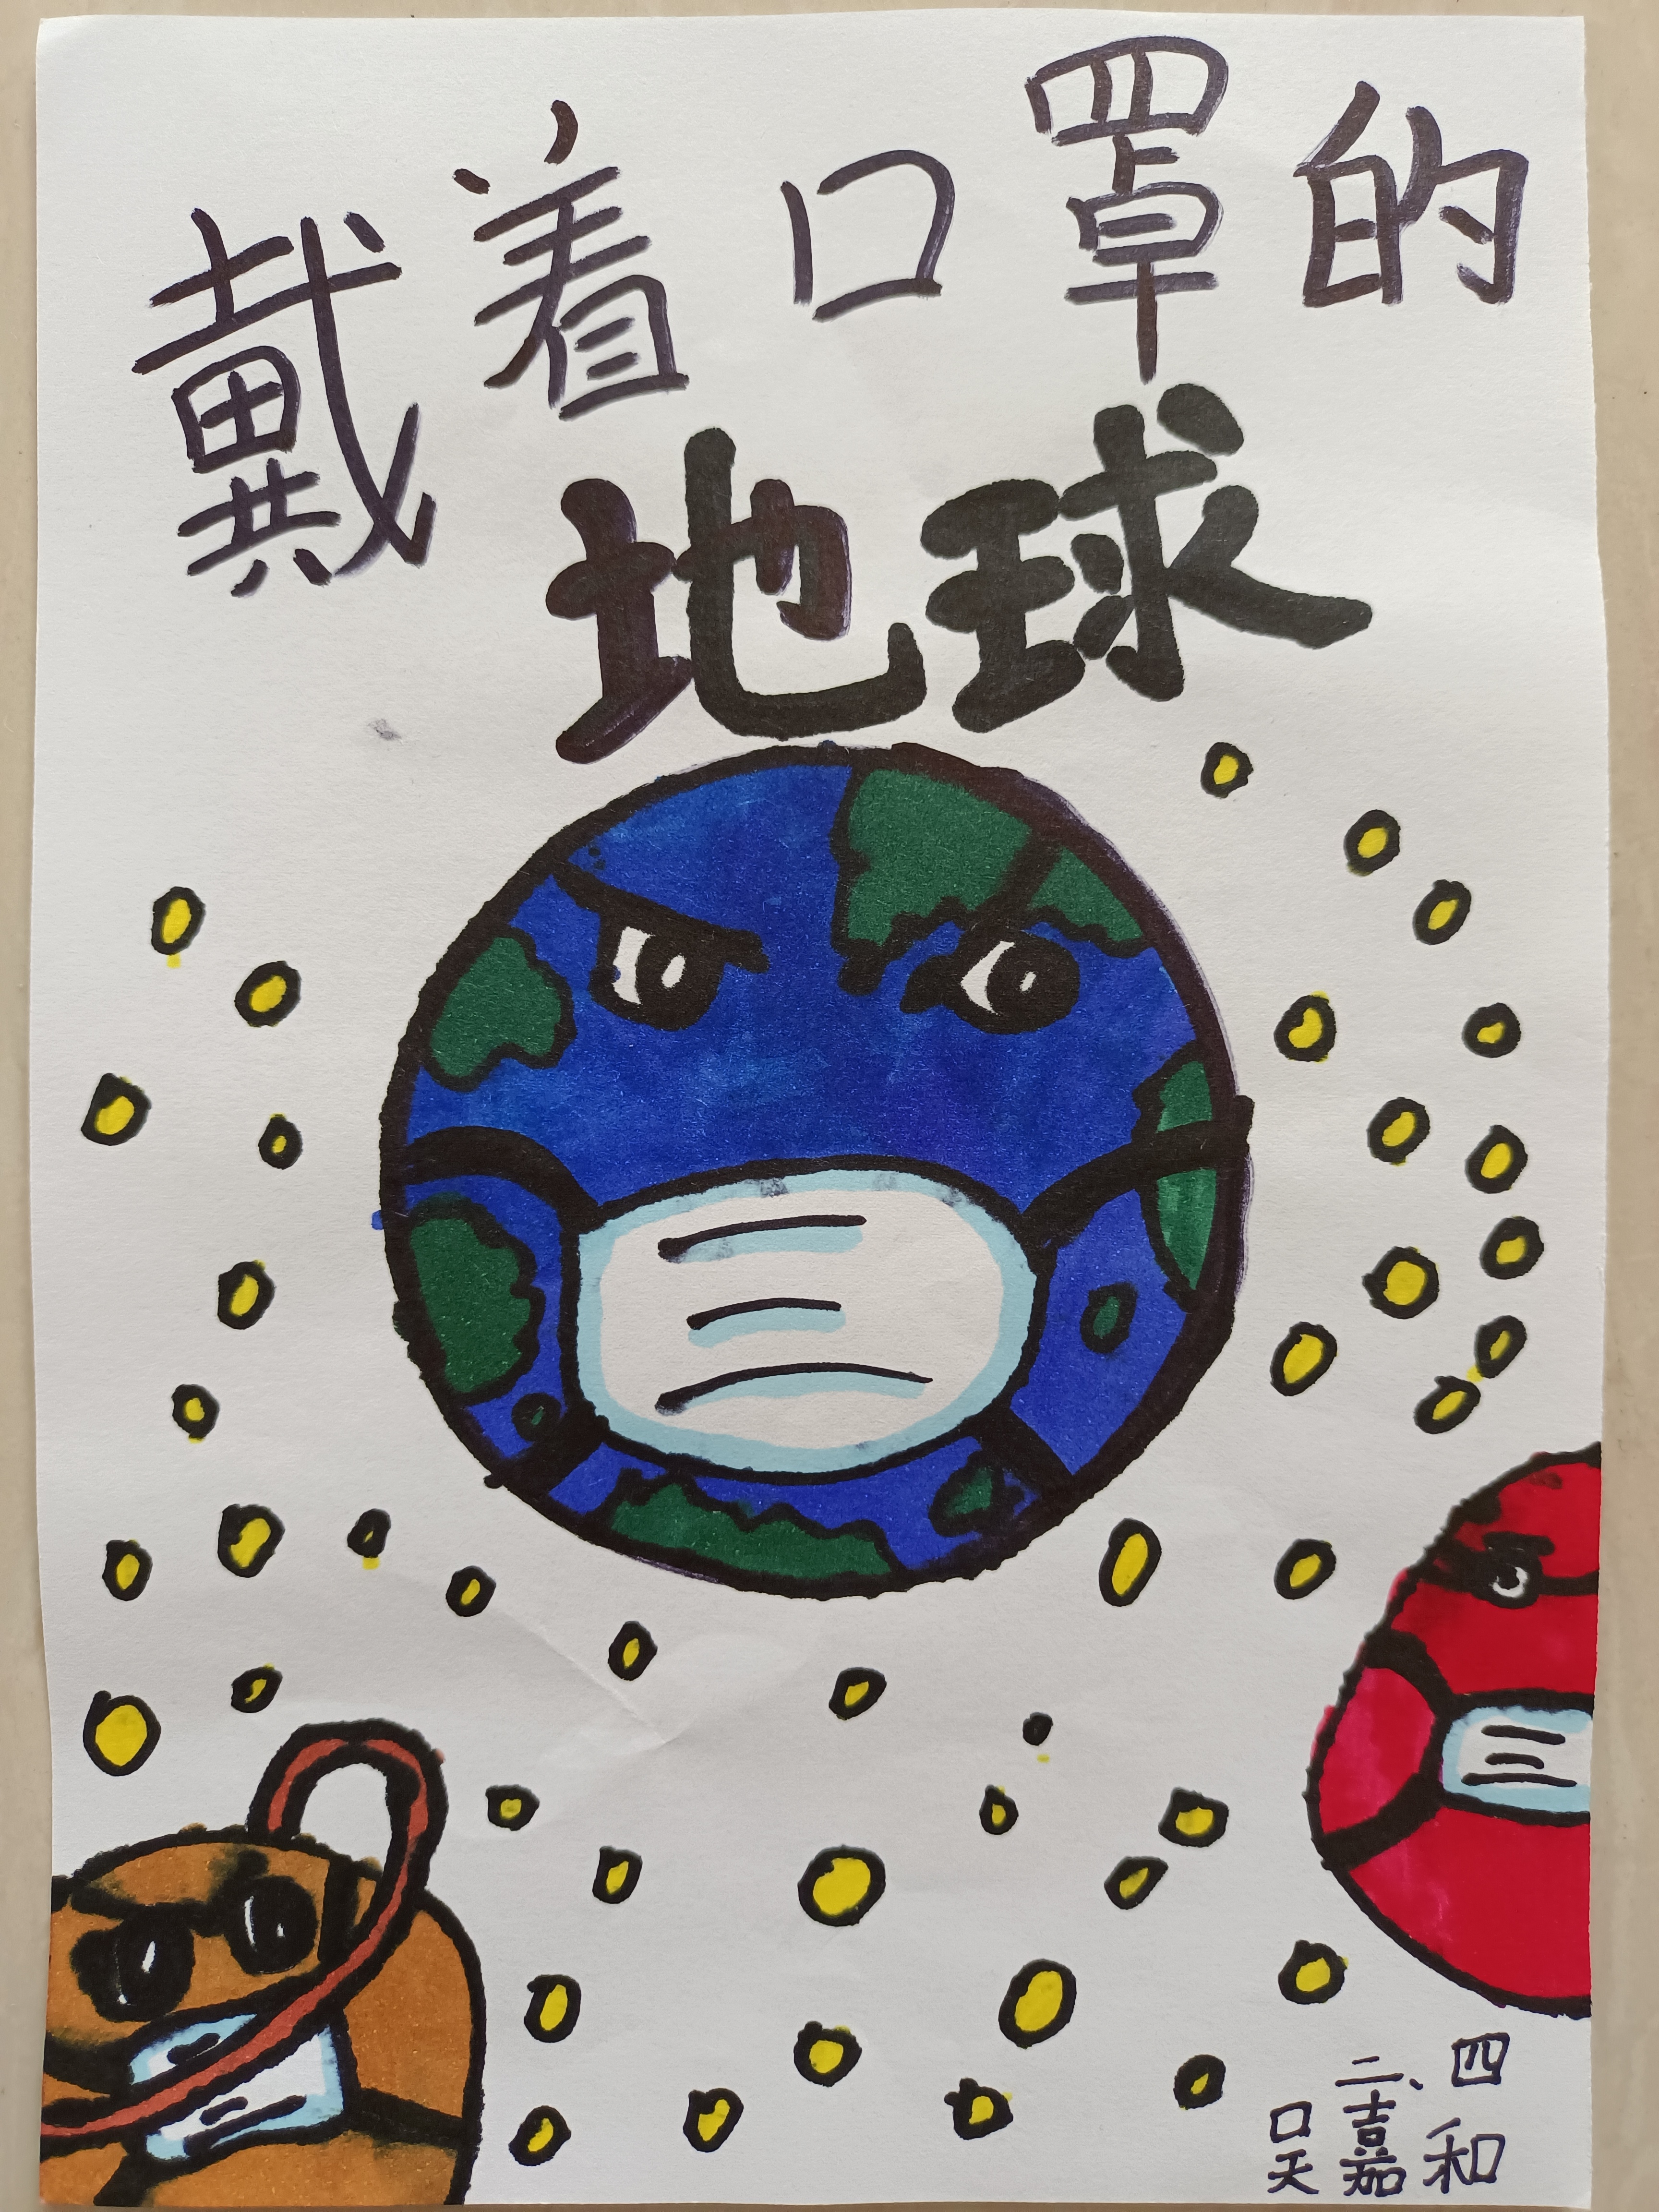 戴着口罩的
地球
二、四
吴嘉和